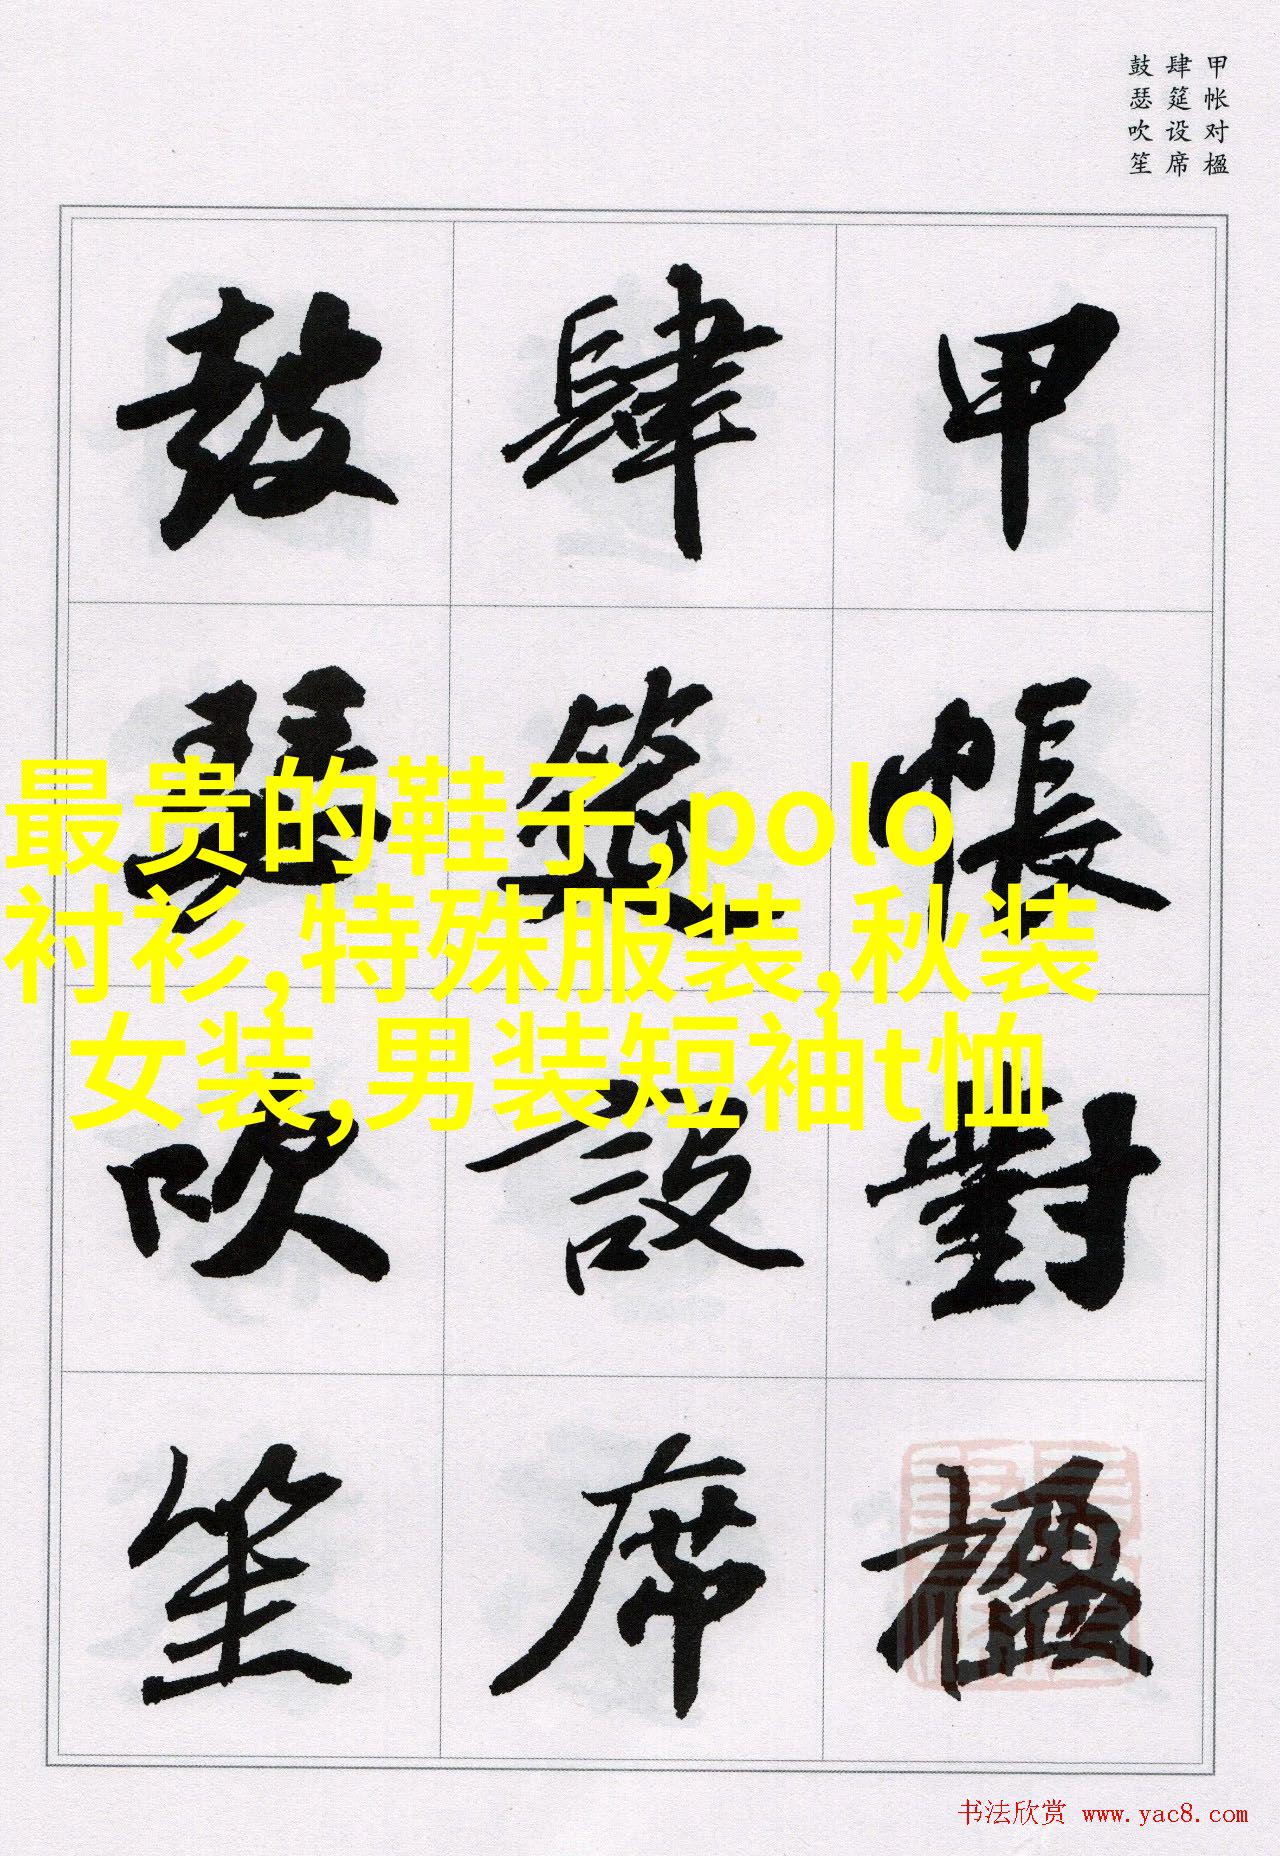 甲帐对楹
肆筵设席
鼓瑟吹笙
甲帳對楹
肆筵設席
鼓瑟吹笙
最贵的鞋子,polo
衬衫,特殊服装,秋装
女装,男装短袖t恤
书法欣赏 www.yac8.com